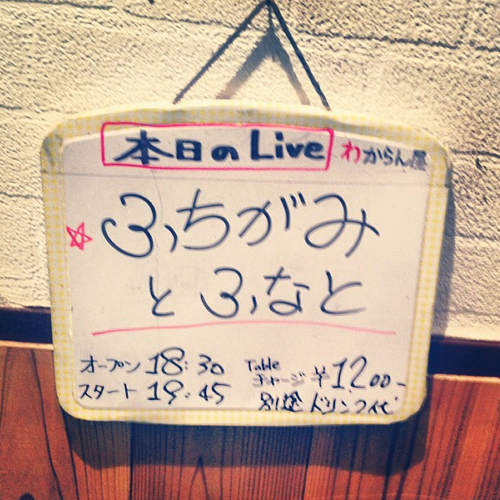 本日のLive わからん屋
ふちがみ
とふなと
オープン 18:30
スタート 19:45
Table
チャージ ¥1200-
別途ドリンク代